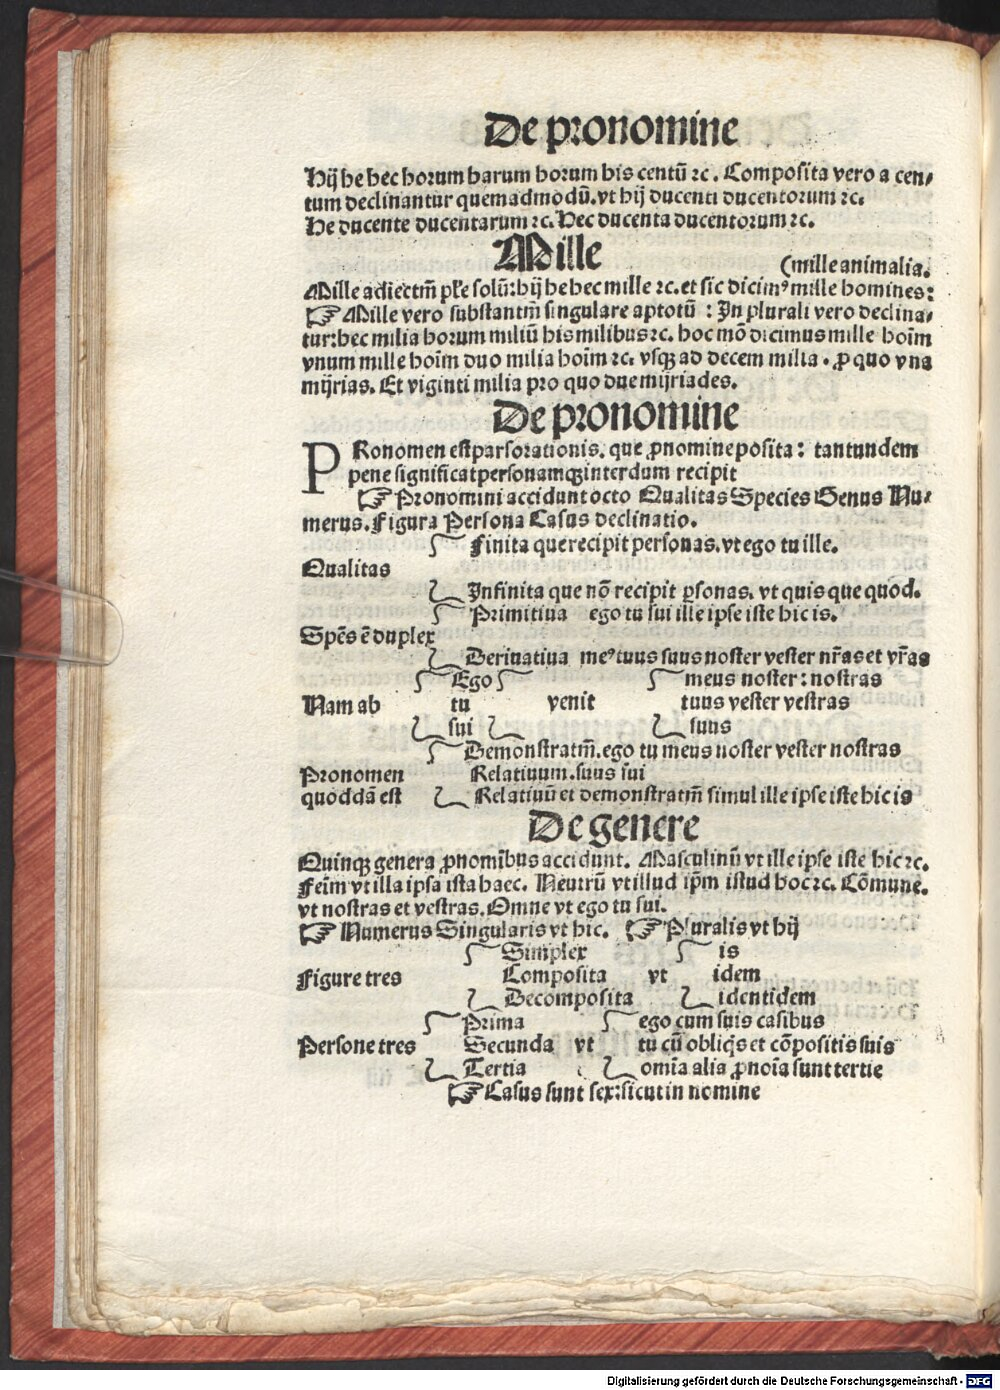 De pronomine
Hij he hec horum harum horum his centū ⁊c. Composita vero a cen⸗
tum declinantur quemadmodū. vt hij ducenti ducentorum ⁊c.
He ducente ducentarum ⁊c. Hec ducenta ducentorum ⁊c.
Mille
(mille animalia.
Mille adiectm̄ pl'e solū: hij he hec mille ⁊c. et sic dicimꝰ mille homines:
☞ Mille vero substantm̄ singulare aptotū : In plurali vero declina⸗
tur: hec milia horum miliū his milibus ⁊c. hoc mō dicimus mille hoīm
vnum mille hoīm duo milia hoīm ⁊c. vsqꝫ ad decem milia . ꝓ quo vna
mijrias. Et viginti milia pro quo due mijriades.
De pronomine
PRonomen est pars orationis. que ꝓnomine posita : tantundem
pene significat personamqꝫ interdum recipit
☞ Pronomini accidunt octo Qualitas Species Genus Nu⸗
merus. Figura Persona Casus declinatio.
Finita que recipit personas. vt ego tu ille.
Qualitas
Infinita que nō recipit ꝑsonas. vt quis que quod.
Primitiua ego tu sui ille ipse iste hic is.
Spēs ē duplex
Deriuatiua meꝰ tuus suus noster vester nr̄as et vr̄as
Ego meus noster : nostras
Nam ab tu venit tuus vester vestras
sui suus
Demonstratm̄. ego tu meus noster vester nostras
Pronomen Relatiuum. suus sui
quoddā est Relatiuū et demonstratm̄ simul ille ipse iste hic is
De genere
Quinqꝫ genera ꝓnomībus accidunt. Masculinū vt ille ipse iste hic ⁊c.
Feīm vt illa ipsa ista haec. Neutrū vt illud ip̄m istud hoc ⁊c. Cōmune.
vt nostras et vestras. Omne vt ego tu sui.
☞ Numerus Singularis vt hic. ☞ Pluralis vt hij
Simplex is
Figure tres Composita vt idem
Decomposita identidem
Prima ego cum suis casibus
Persone tres Secunda vt tu cū obliq̄s et cōpositis suis
Tertia omīa alia ꝓnoīa sunt tertie
☞ Casus sunt sex: sicut in nomine
Digitalisierung gefördert durch die Deutsche Forschungsgemeinschaft - DFG